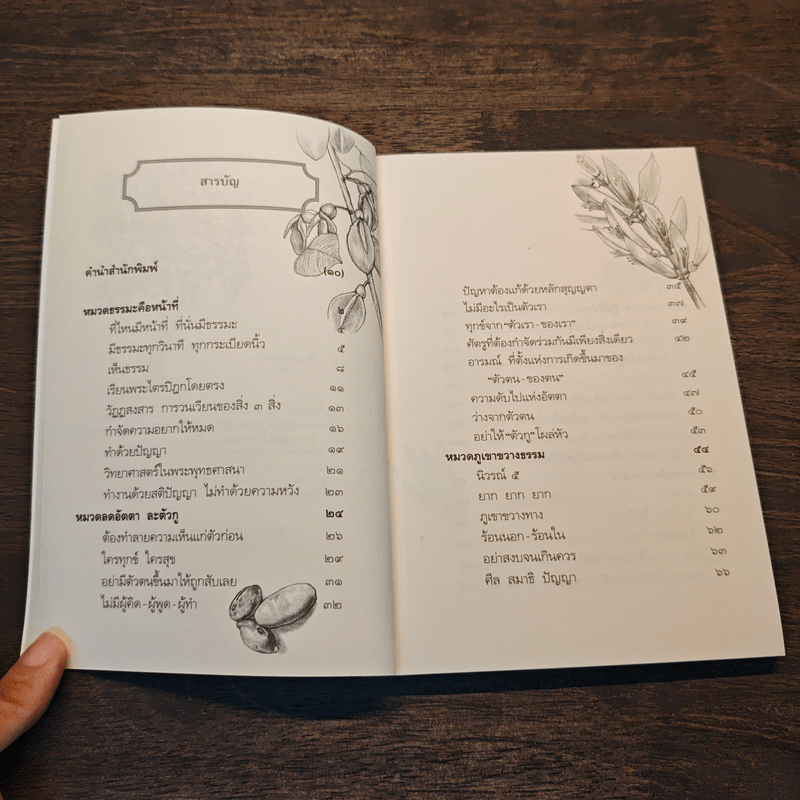 สารบัญ
คำนำสำนักพิมพ์ (๑๐)
หมวดธรรมะคือหน้าที่ ๒
ที่ไหนมีหน้าที่ ที่นั่นมีธรรมะ ๔
มีธรรมะทุกวินาที ทุกกระเบียดนิ้ว ๕
เห็นธรรม ๘
เรียนพระไตรปิฎกโดยตรง ๑๑
วัฏฏสงสาร การวนเวียนของสิ่ง ๓ สิ่ง ๑๓
กำจัดความอยากให้หมด ๑๖
ทำด้วยปัญญา ๑๙
วิทยาศาสตร์ในพระพุทธศาสนา ๒๑
ทำงานด้วยสติปัญญา ไม่ทำด้วยความหวัง ๒๓
หมวดลดอัตตา ละตัวกู ๒๔
ต้องทำลายความเห็นแก่ตัวก่อน ๒๖
ใครทุกข์ ใครสุข ๒๙
อย่ามีตัวตนขึ้นมาให้ถูกสับเลย ๓๑
ไม่มีผู้คิด-ผู้พูด-ผู้ทำ ๓๒
ปัญหาต้องแก้ด้วยหลักสุญญตา ๓๕
ไม่มีอะไรเป็นตัวเรา ๓๗
ทุกข์จาก "ตัวเรา-ของเรา" ๓๙
ศัตรูที่ต้องกำจัดร่วมกันมีเพียงสิ่งเดียว ๔๒
อารมณ์ ที่ตั้งแห่งการเกิดขึ้นมาของ
"ตัวตน-ของตน" ๔๕
ความดับไปแห่งอัตตา ๔๗
ว่างจากตัวตน ๕๐
อย่าให้ "ตัวกู" โผล่หัว ๕๓
หมวดภูเขาขวางธรรม ๕๔
นิวรณ์ ๕ ๕๖
ยาก ยาก ยาก ๕๙
ภูเขาขวางทาง ๖๐
ร้อนนอก-ร้อนใน ๖๒
อย่าสงบจนเกินควร ๖๓
ศีล สมาธิ ปัญญา ๖๖